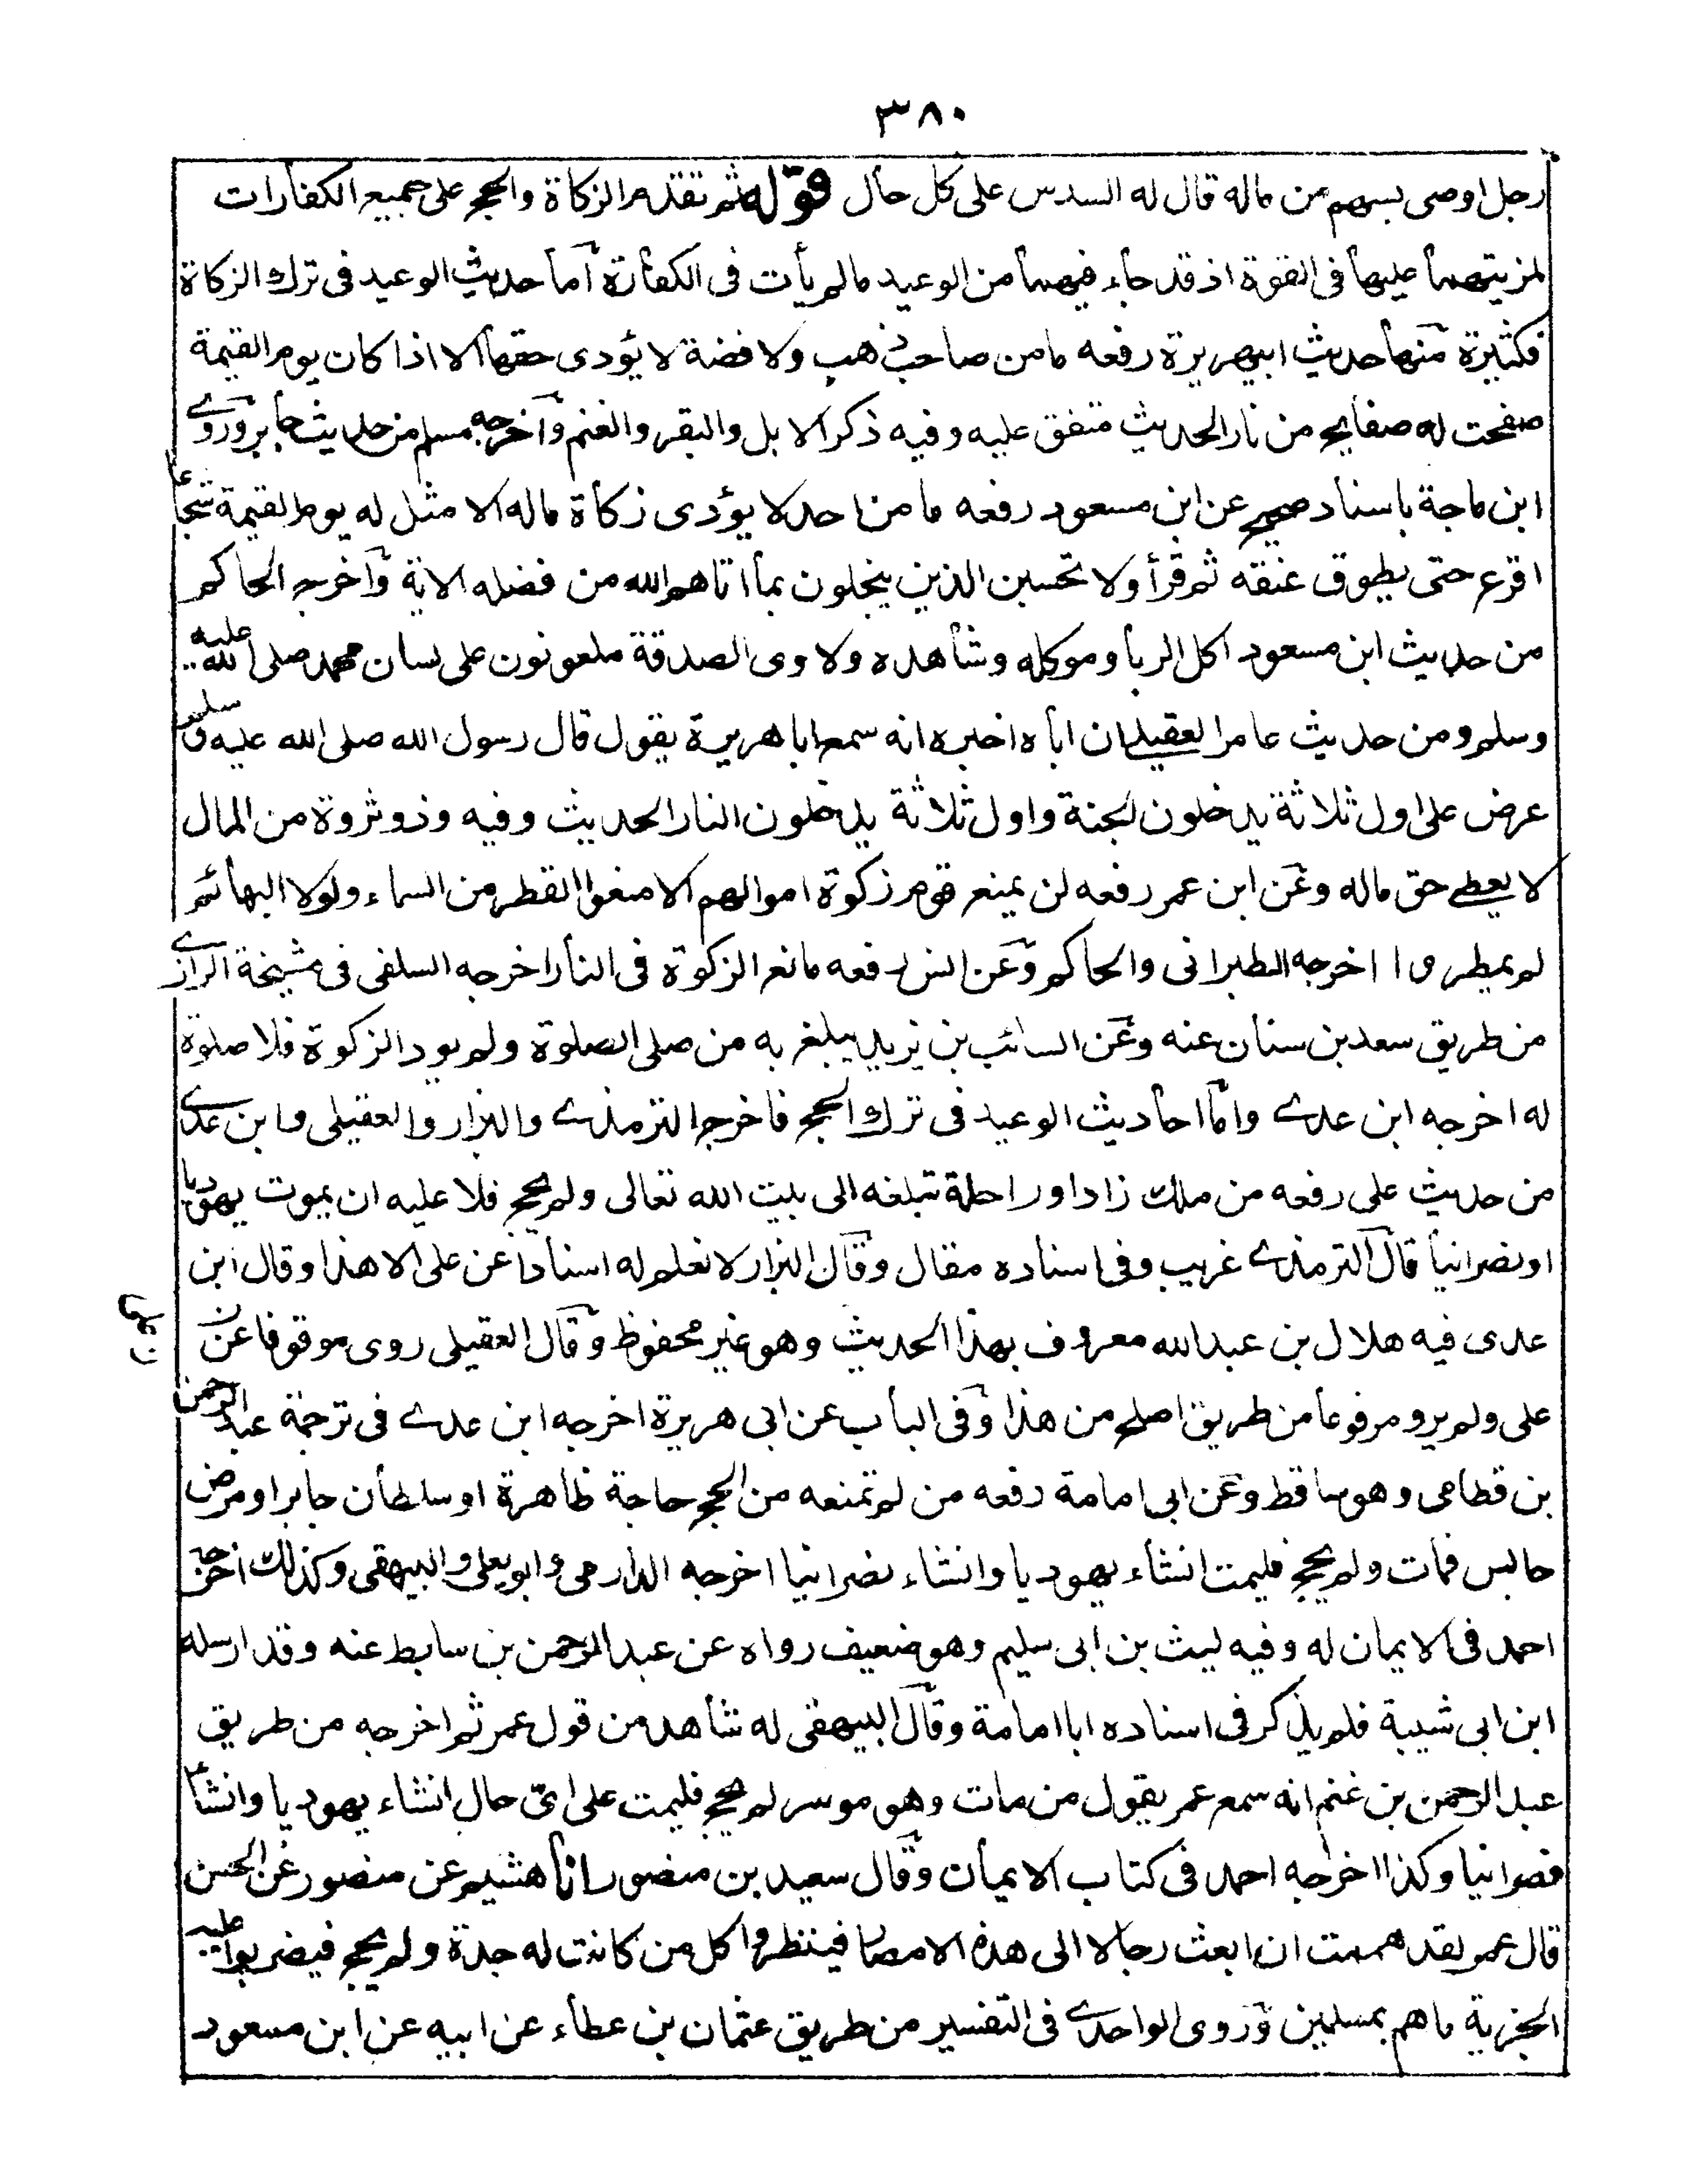 ٣٨٠
رجل اوصى بسهم من ماله قال له السدس على كل حال قوله ثم تقدم الزكاة والحج على جميع الكفارات
لمزيتهما عليها فى القوة اذ قد جاء فيهما من الوعيد مالم يأت فى الكفارة اما حديث الوعيد فى ترك الزكاة
فكثيرة منها حديث ابيهريرة رفعه مامن صاحب ذهب ولا فضة لا يؤدى حقها الا اذا كان يوم القيمة
صفحت له صفايح من نار الحديث متفق عليه وفيه ذكر الابل والبقر والغنم واخرجه مسلم من حديث جابر وروے
ابن ماجة باسناد صحيح عن ابن مسعود رفعه ما من احد لا يؤدى زكاة ماله الا مثل له يوم القيمة شجاعا
اقرع حتى يطوق عنقه ثم قرأ ولا تحسبن الذين يبخلون بما اتاهم الله من فضله الاية واخرجه الحاكم
من حديث ابن مسعود اكل الربا وموكله وشاهده ولاوى الصدقة ملعونون على لسان محمد صلى الله عليه
وسلم ومن حديث عامر العقيلے ان اباه اخبره انه سمع ابا هريرة يقول قال رسول الله صلى الله عليه وسلم
عرض على اول ثلاثة يدخلون الجنة واول ثلاثة يدخلون النار الحديث وفيه وذو ثروة من المال
لا يعطے حق ماله وعن ابن عمر رفعه لن يمنع قوم زكوة اموالهم الا منعوا القطر من السماء ولولا البهائم
لم يمطروا اخرجه الطبرانى والحاكم وعن انس رفعه مانع الزكوة فى النار اخرجه السلفى فى مشيخة الرازے
من طريق سعد بن سنان عنه وعن السائب بن يزيد يبلغ به من صلى الصلوة ولم يود الزكوة فلا صلوة
له اخرجه ابن عدے واما احاديث الوعيد فى ترك الحج فاخرج الترمذے والبزار والعقيلى وابن عدے
من حديث على رفعه من ملك زادا وراحلة تبلغه الى بيت الله تعالى ولم يحج فلا عليه ان يموت يهوديا
اونصرانيا قال الترمذے غريب وفى اسناده مقال وقال البزار لا نعلم له اسنادا عن على الا هذا وقال ابن
عدى فيه هلال بن عبدالله معروف بهذا الحديث وهو غير محفوظ وقال العقيلى روى موقوفا عن
على ولم يرو مرفوعا من طريق اصلح من هذا وفى الباب عن ابى هريرة اخرجه ابن عدے فى ترجمة عبد الرحمن
بن قطامى وهو ساقط وعن ابى امامة رفعه من لم تمنعه من الحج حاجة ظاهرة او سلطان جابر او مرض
حابس فمات ولم يحج فليمت انشاء يهوديا وانشاء نصرانيا اخرجه الدارمى وابو يعلى والبيهقى وكذلك اخرجه
احمد فى الايمان له وفيه ليث بن ابى سليم وهو ضعيف رواه عن عبدالرحمن بن سابط عنه وقد ارسله
ابن ابى شيبة فلم يذكر فى اسناده ابا امامة وقال البيهقى له شاهد من قول عمر ثم اخرجه من طريق
عبدالرحمن بن غنم انه سمع عمر يقول من مات وهو موسر لم يحج فليمت على اىّ حال انشاء يهوديا وانشاء
نصرانيا وكذا اخرجه احمد فى كتاب الايمان وقال سعيد بن منصور انا هشيم عن منصور عن الحسن
قال عمر لقد هممت ان ابعث رجالا الى هذه الامصار فينظروا كل من كانت له جدة ولم يحج فيضربوا عليه
الجزية ما هم بمسلمين وروى الواحدے فى التفسير من طريق عثمان بن عطاء عن ابيه عن ابن مسعود